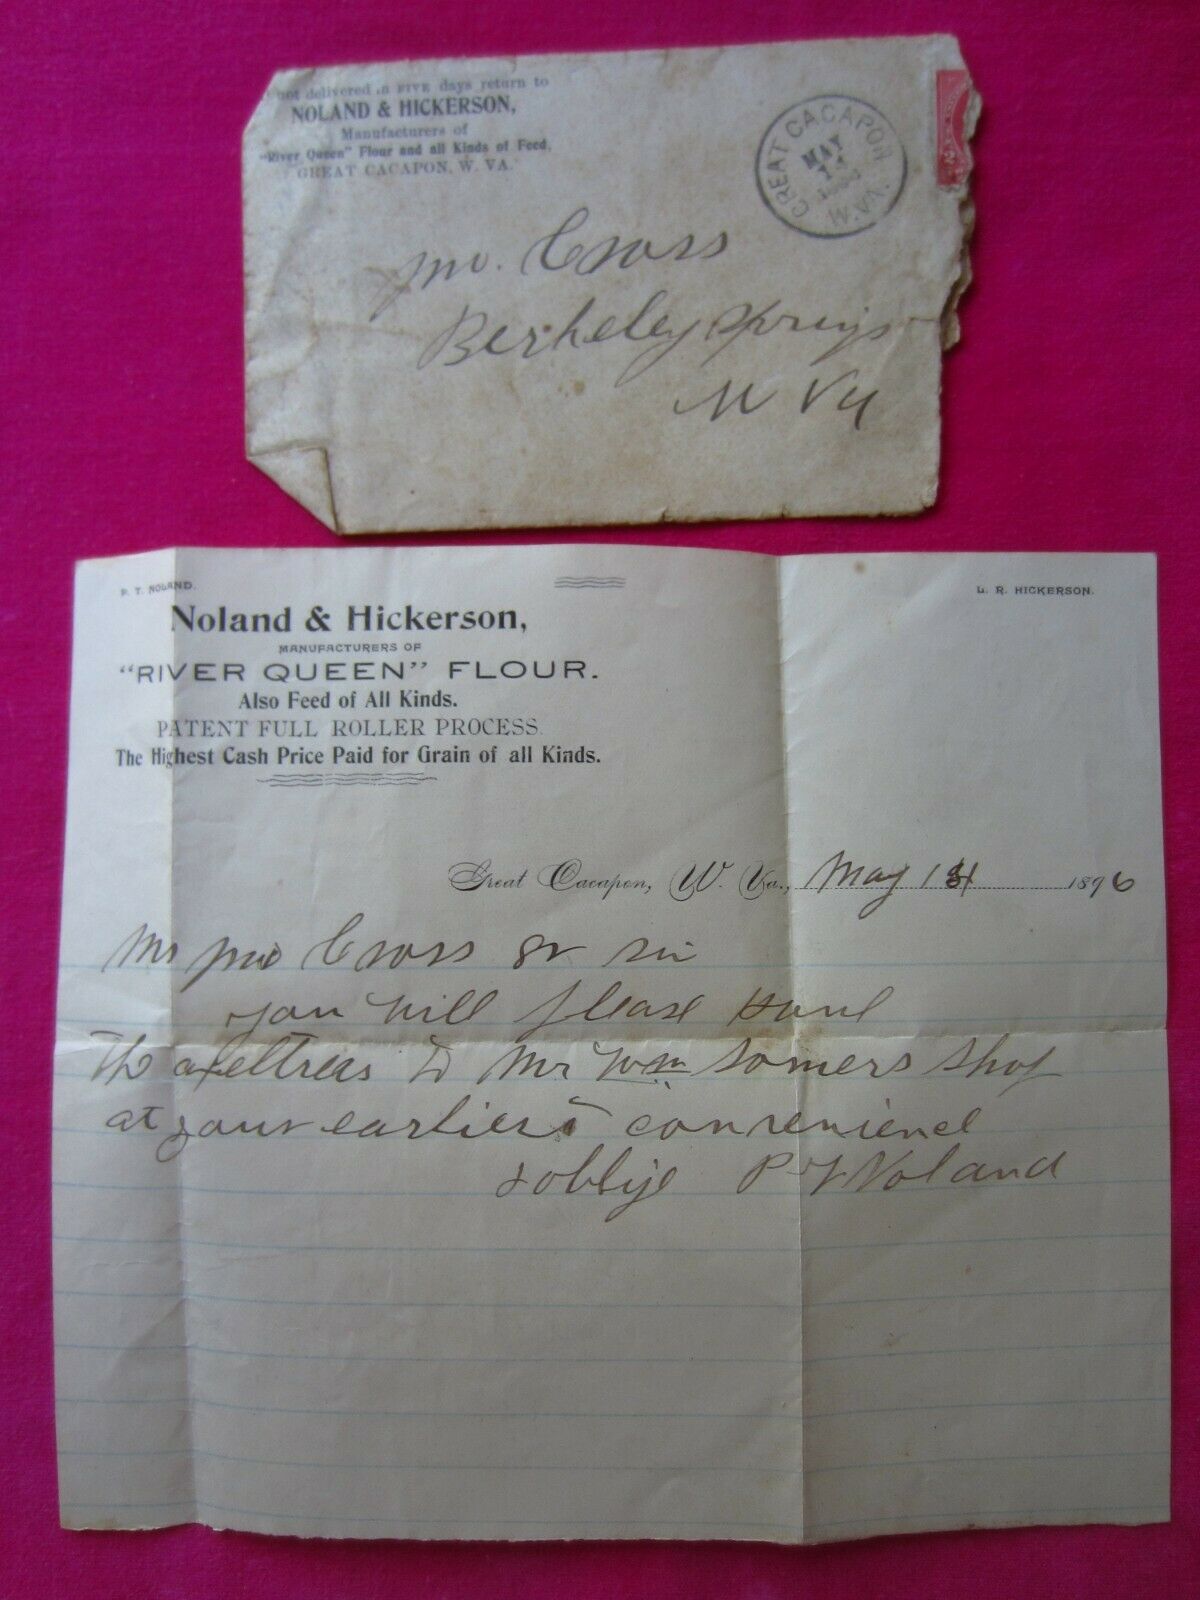 not delivered in FIVE days return to
NOLAND & HICKERSON,
Manufacturers of
"River Queen" Flour and all Kinds of Feed,
GREAT CACAPON, W. VA.
GREAT CACAPON
MAY
W.VA.
Mr. Cross
Berkeley Springs
W Va
P. T. NOLAND.
L. R. HICKERSON.
Noland & Hickerson,
MANUFACTURERS OF
"RIVER QUEEN" FLOUR.
Also Feed of All Kinds.
PATENT FULL ROLLER PROCESS.
The Highest Cash Price Paid for Grain of all Kinds.
Great Cacapon, W. Va., May 1896
Mr Cross Sr sir
you will please
The to Mr Wm Somers Shop
at your earliest convenience
& oblige P T Noland